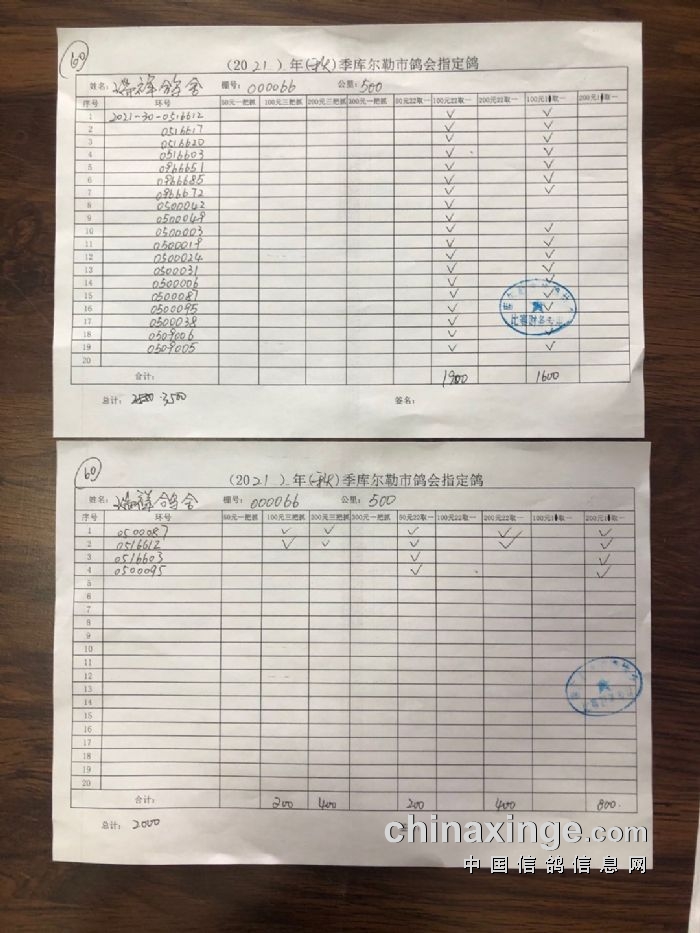 60
(2021)年(秋)季库尔勒市鸽会指定鸽
姓名: 瑞祥鸽舍 棚号: 000066 公里: 500
序号 环号 50元一把抓 100元三把抓 200元三把抓 300元一把抓 50元22取一 100元22取一 200元22取一 100元1取一 200元1取一
1 2021-30-0516612 ✓ ✓
2 0516617 ✓ ✓
3 0516620 ✓ ✓
4 0516603 ✓ ✓
5 0966651 ✓ ✓
6 0966685 ✓ ✓
7 0966672 ✓ ✓
8 0500042 ✓
9 0500049 ✓
10 0500003 ✓ ✓
11 0500019 ✓ ✓
12 0500024 ✓ ✓
13 0500031 ✓ ✓
14 0500006 ✓ ✓
15 0500087 ✓ ✓
16 0500095 ✓ ✓
17 0500038 ✓
18 0509006 ✓ ✓
19 0509005 ✓ ✓
20
合计: 1900 1600
总计: 3500 签名:
60
(2021)年(秋)季库尔勒市鸽会指定鸽
姓名: 瑞祥鸽舍 棚号: 000066 公里: 500
序号 环号 50元一把抓 100元三把抓 200元三把抓 300元一把抓 50元22取一 100元22取一 200元22取一 100元1取一 200元1取一
1 0500087 ✓ ✓ ✓ ✓ ✓
2 0516612 ✓ ✓ ✓ ✓ ✓
3 0516603 ✓ ✓
4 0500095 ✓ ✓
5
6
7
8
9
10
11
12
13
14
15
16
17
18
19
20
合计: 200 400 200 400 800
总计: 2000
chinaxinge.com
中国信鸽信息网